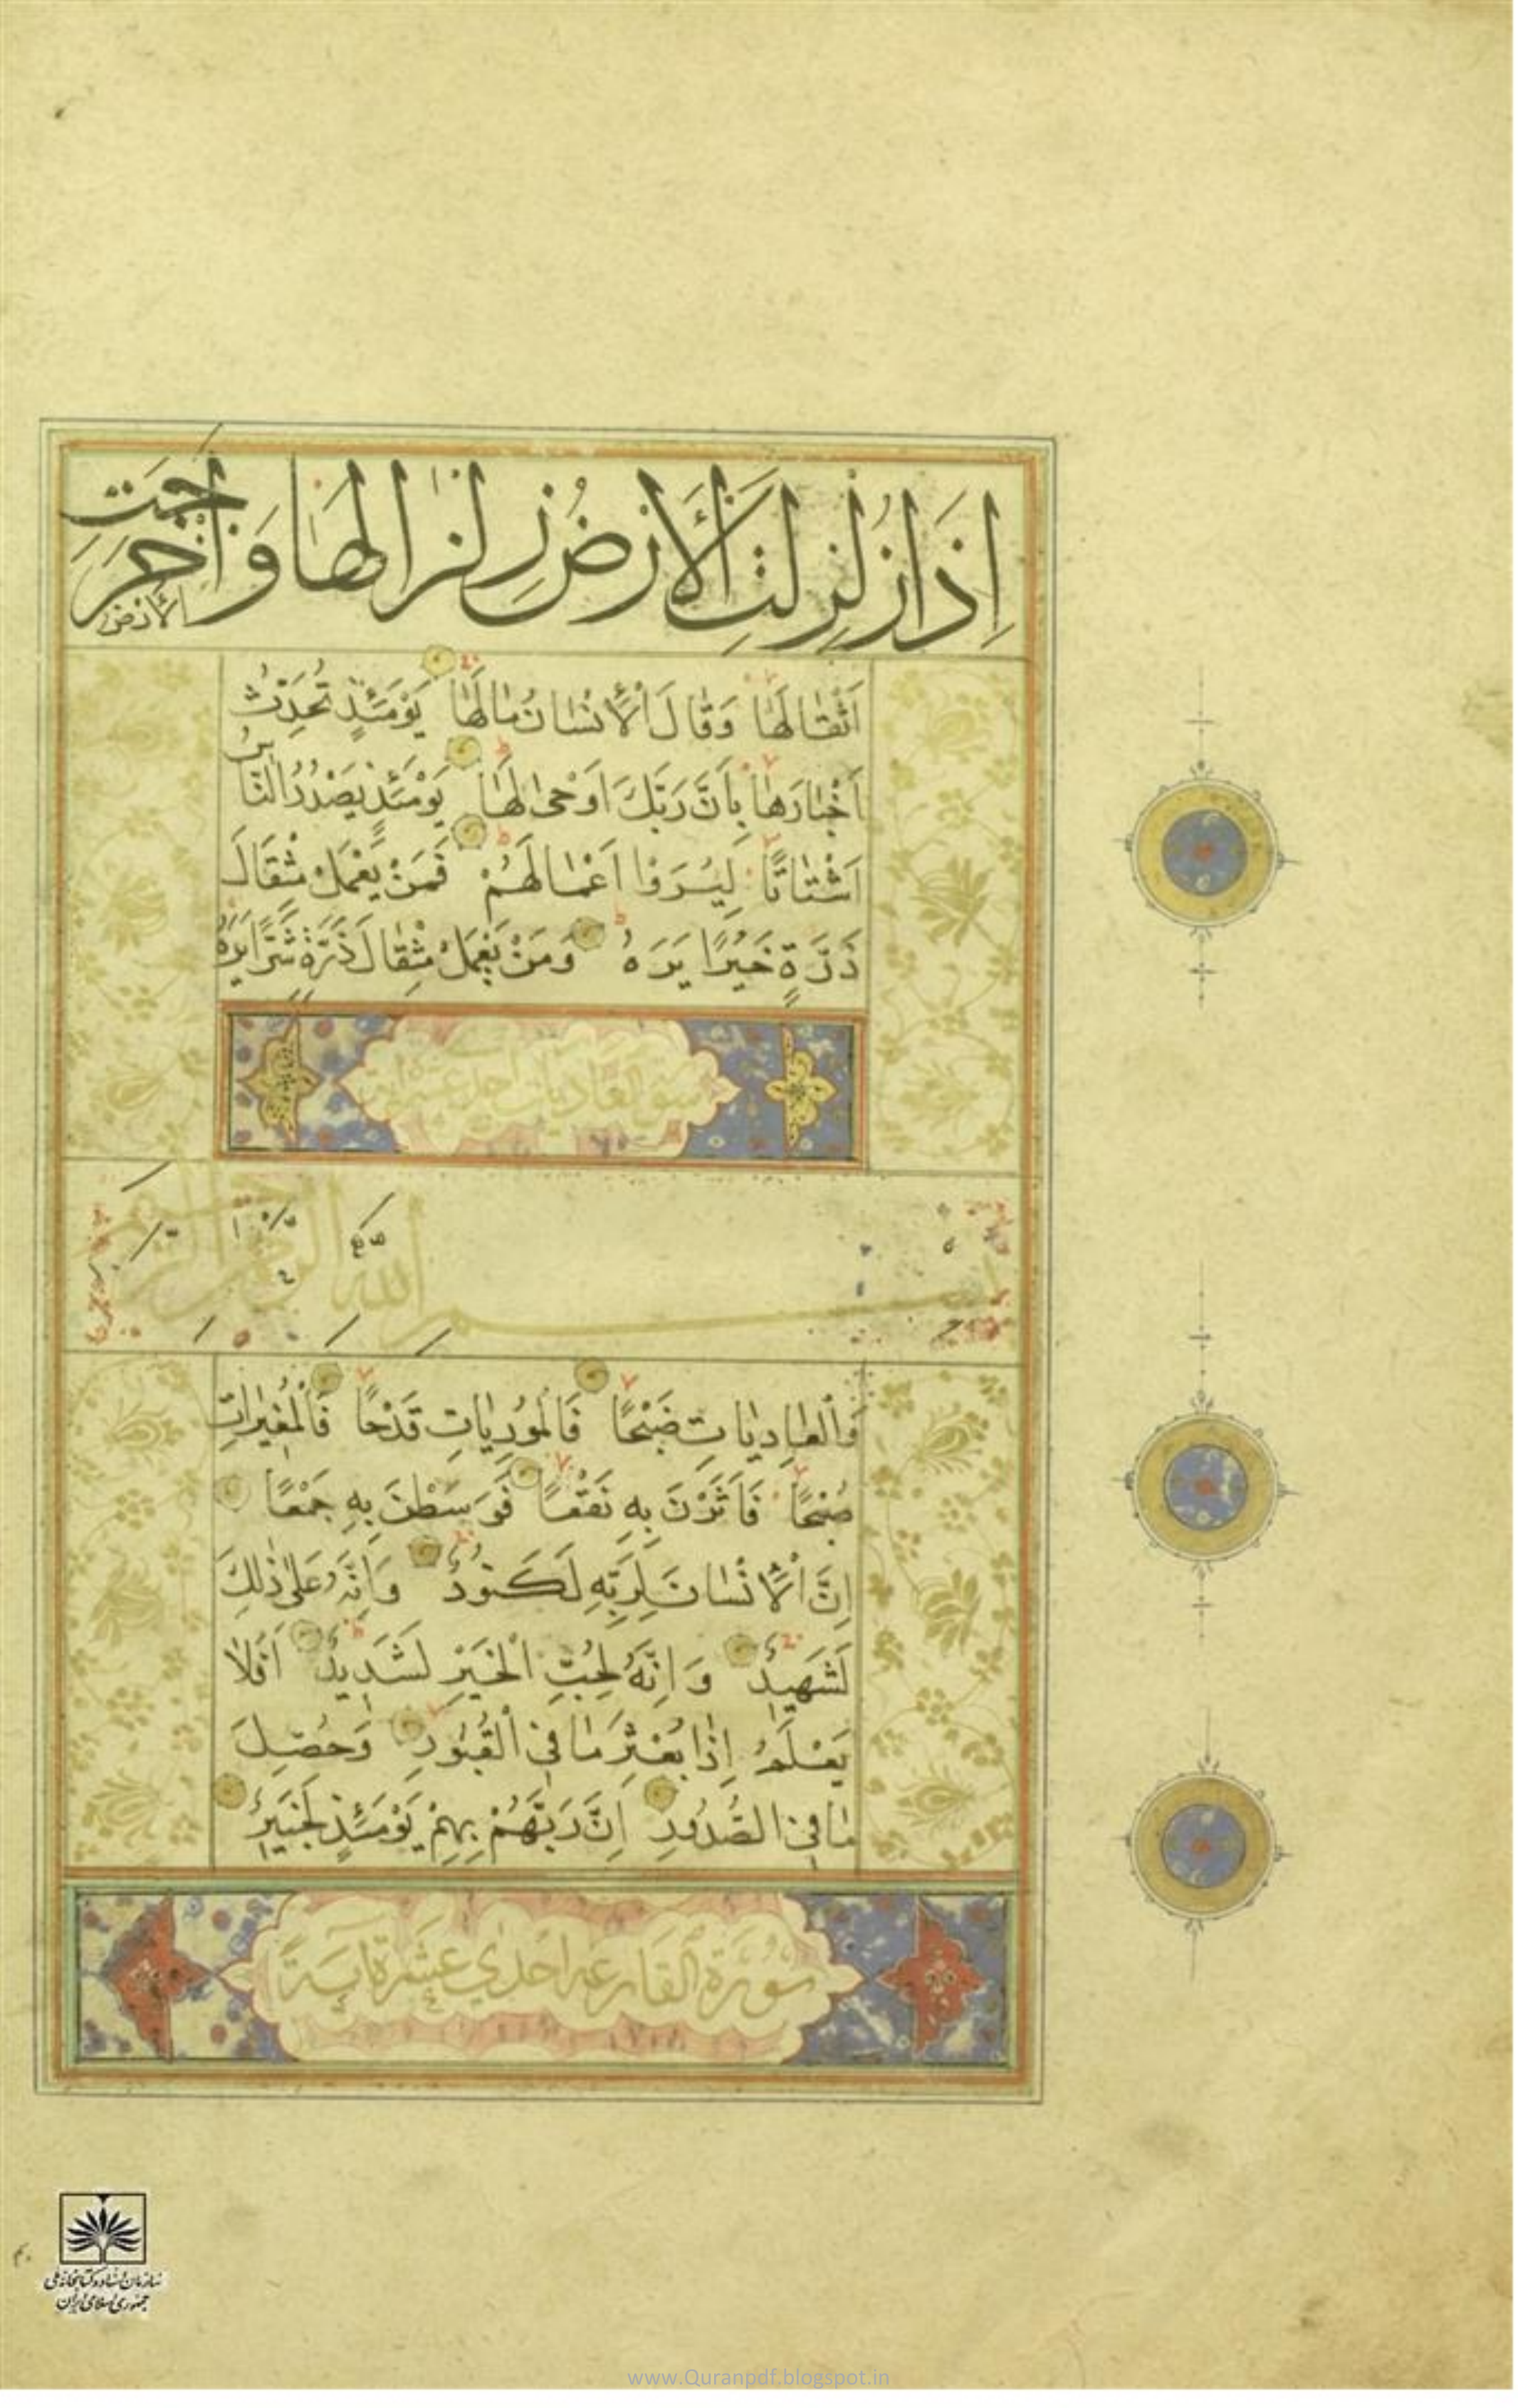 اِذَا زُلْزِلَتِ الْاَرْضُ زِلْزَالَهَا وَاَخْرَجَتِ
الْاَرْضُ
اَثْقَالَهَا وَقَالَ الْاِنْسَانُ مَالَهَا يَوْمَئِذٍ تُحَدِّثُ
اَخْبَارَهَا بِاَنَّ رَبَّكَ اَوْحٰى لَهَا يَوْمَئِذٍ يَصْدُرُ النَّاسُ
اَشْتَاتًا لِيُرَوْا اَعْمَالَهُمْ فَمَنْ يَعْمَلْ مِثْقَالَ
ذَرَّةٍ خَيْرًا يَرَهُ وَمَنْ يَعْمَلْ مِثْقَالَ ذَرَّةٍ شَرًّا يَرَهُ
سورة العاديات احدى عشرة اية
بسم الله الرحمن الرحيم
وَالْعَادِيَاتِ ضَبْحًا فَالْمُورِيَاتِ قَدْحًا فَالْمُغِيرَاتِ
صُبْحًا فَاَثَرْنَ بِهِ نَقْعًا فَوَسَطْنَ بِهِ جَمْعًا
اِنَّ الْاِنْسَانَ لِرَبِّهِ لَكَنُودٌ وَاِنَّهُ عَلٰى ذٰلِكَ
لَشَهِيدٌ وَاِنَّهُ لِحُبِّ الْخَيْرِ لَشَدِيدٌ اَفَلَا
يَعْلَمُ اِذَا بُعْثِرَ مَا فِي الْقُبُورِ وَحُصِّلَ
مَا فِي الصُّدُورِ اِنَّ رَبَّهُمْ بِهِمْ يَوْمَئِذٍ لَخَبِيرٌ
سُورَة القارعة احدي عشرة اية
سازمان اسناد و کتابخانه ملی
جمهوری اسلامی ایران
www.Quranpdf.blogspot.in